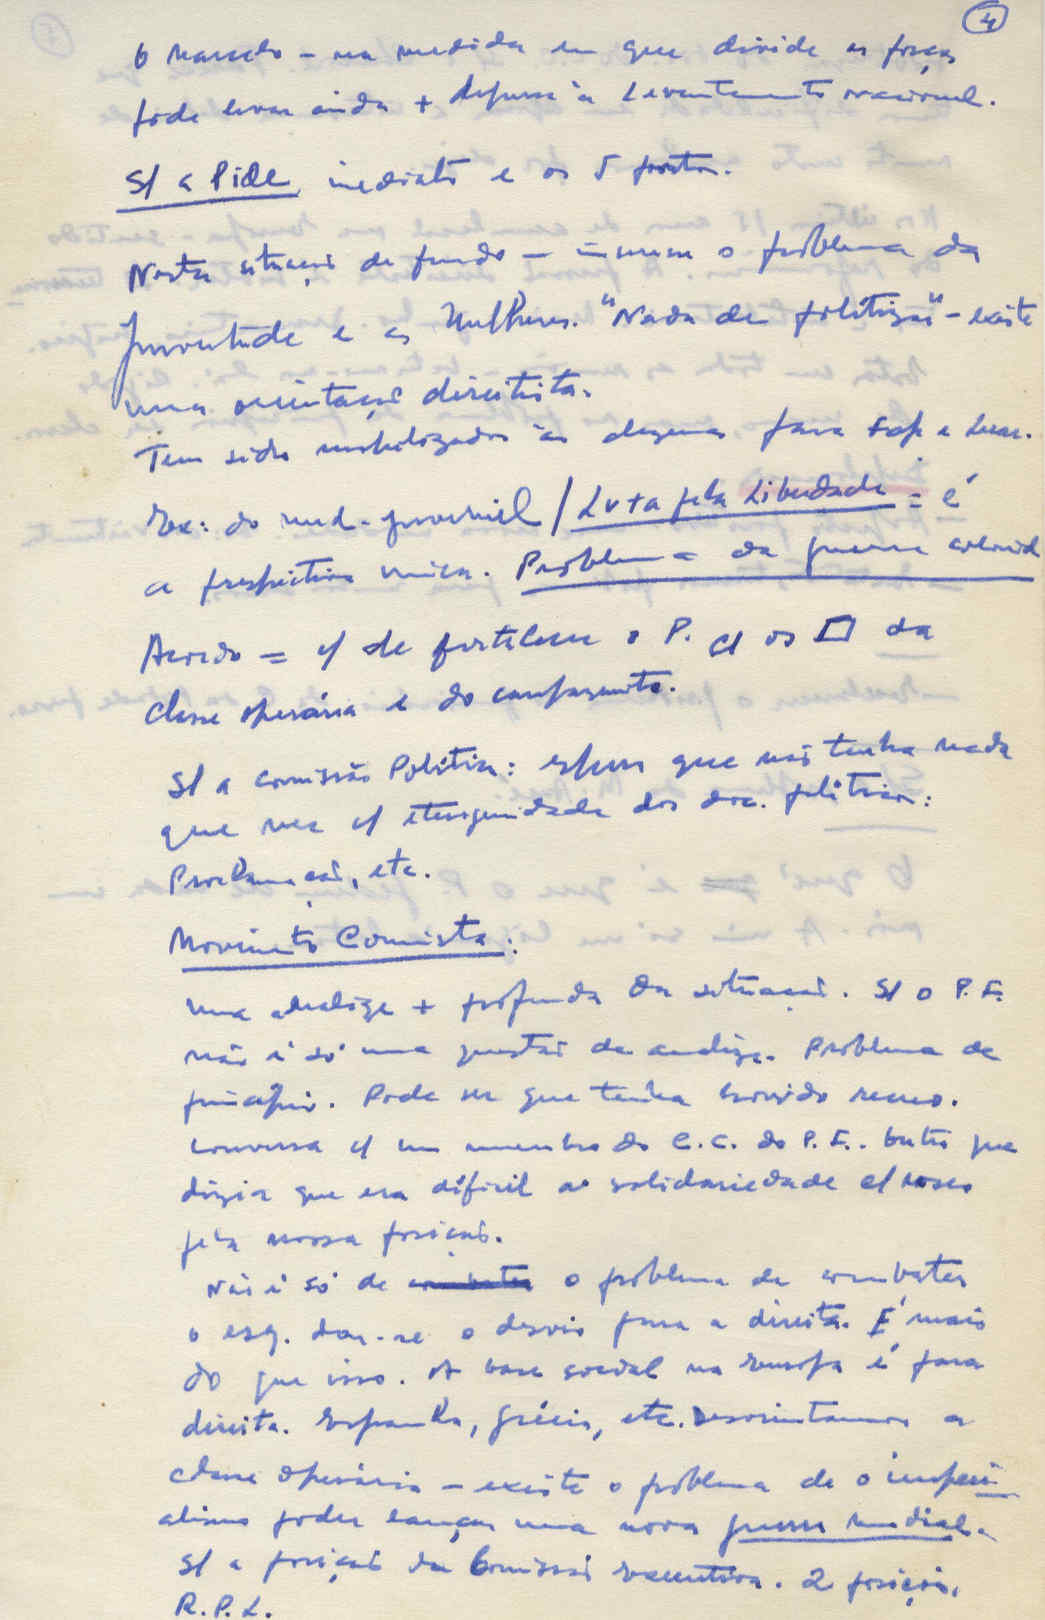 4
O Marcelo - na medida em que divide as forças
pode levar ainda + depressa à Levantamento nacional.
S/ a Pide imediato e os 5 pontos.
Nesta situação de fundo - o problema da
Juventude e as Mulheres. "Nada de politizar" - existe
uma orientação direitista.
Tem sido mobilizados às dezenas para
Ex: do juvenil / Luta pela Liberdade = é
a perspectiva única. Problema da guerra colonial
Acordo = c/ de fortalecer o P. c/ os □ da
classe operária e do campesinato.
S/ a comissão Politica: espero que não tenha nada
que ver c/ eterogenidade dos doc. politicos:
Proclamação, etc.
Movimento Comista:
uma analize + profunda da situação. S/ o P.F.
não é só uma questão de analize. Problema de
principio. Pode ser que tenha havido recuo.
conversa c/ um membro do C.C. do P.F.. que
dizia que era dificil a solidariedade c/ nosco
pela nossa posição.
Não é só de o problema de combater
o esq. dar-se o desvio para a direita. É mais
do que isso. A base social na Europa é para
direita. Espanha, Grécia, etc. Desorientamos a
classe operária - existe o problema de o imperi
alismo poder lançar uma nova guerra mundial.
S/ a posição da Comissão Executiva. 2 posições.
R.P.L.